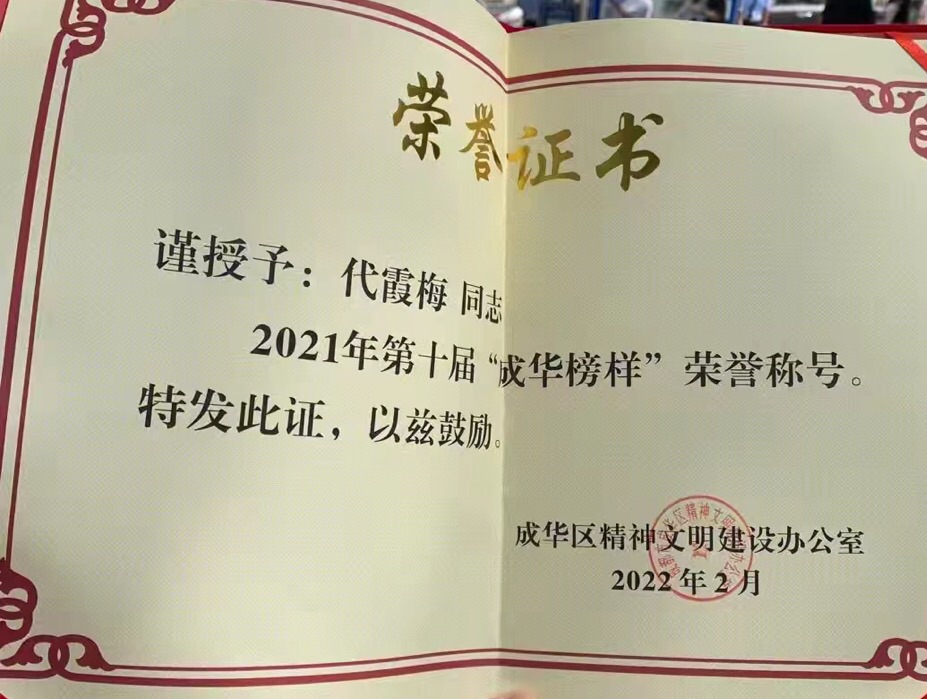 荣誉证书
谨授予：代霞梅 同志
2021年第十届“成华榜样”荣誉称号。
特发此证，以兹鼓励。
成华区精神文明建设办公室
2022年2月